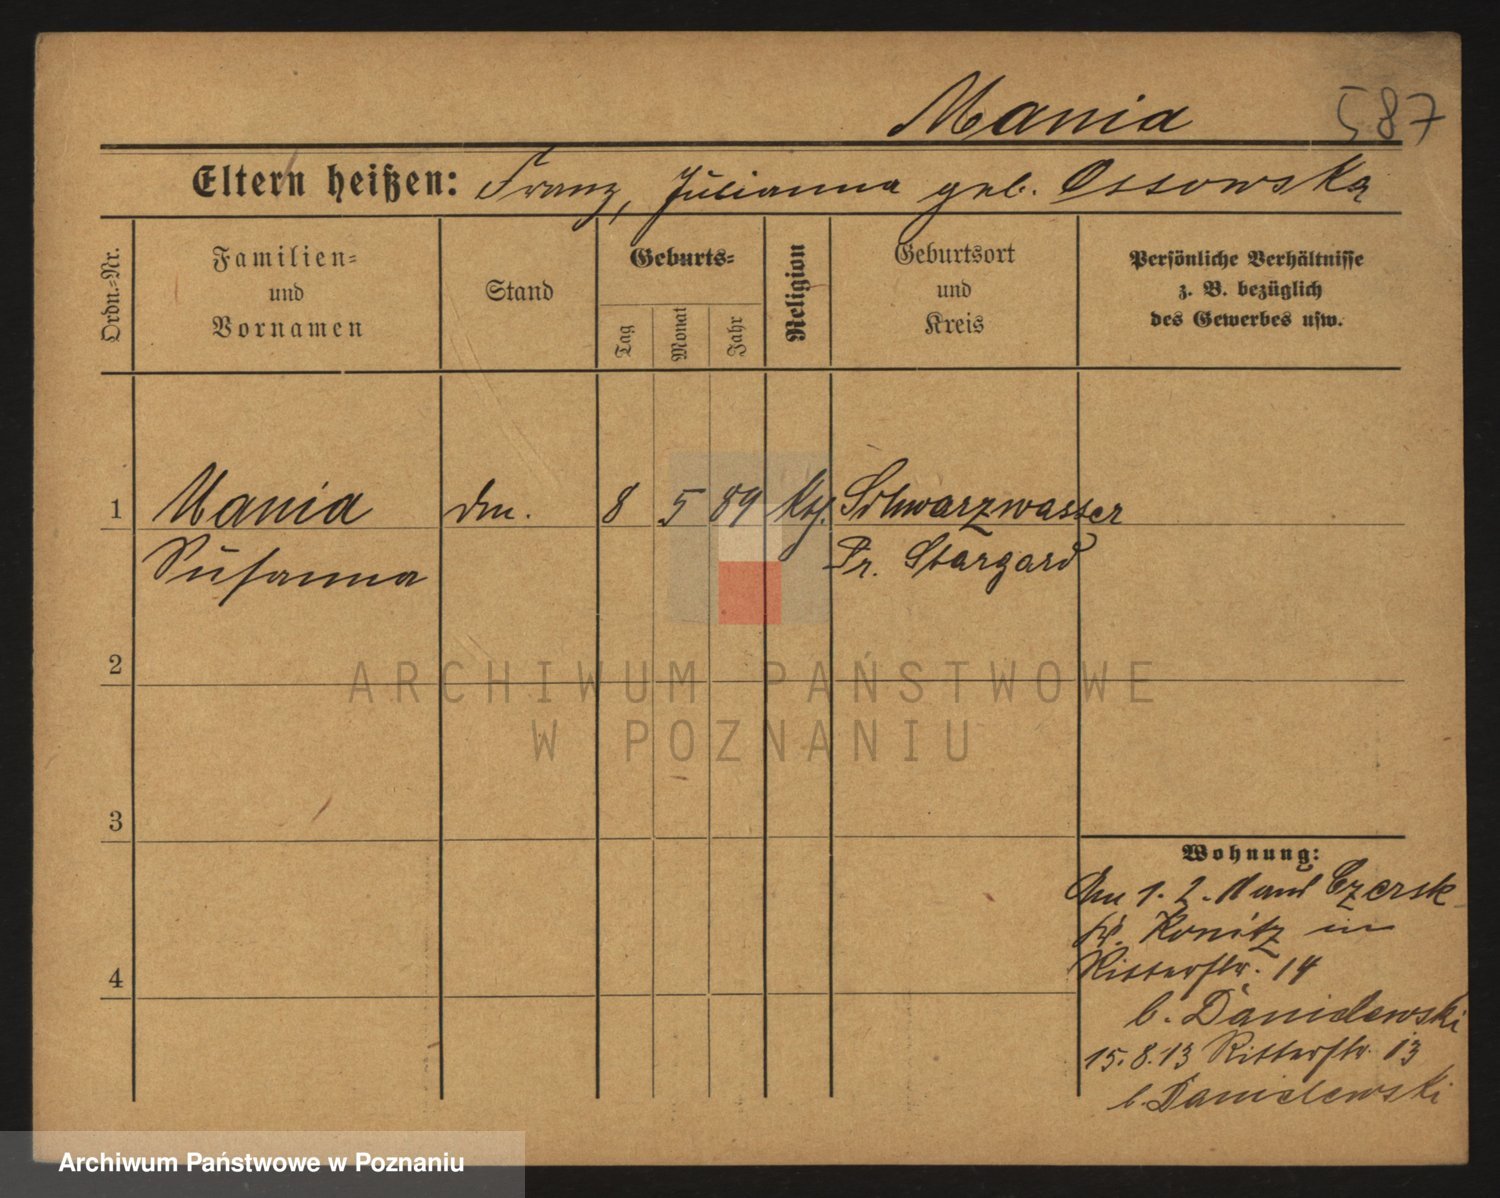 Mania 587
Eltern heißen: Franz, Julianna geb. Ossowska
Ordn.-Nr.
Familien-
und
Vornamen
Stand
Geburts-
Tag
Monat
Jahr
Religion
Geburtsort
und
Kreis
Persönliche Verhältnisse
z. B. bezüglich
des Gewerbes usw.
1 Mania 8 5 89 kth. Schwarzwasser
Susanna Pr. Stargard
2
ARCHIWUM PAŃSTWOWE
W POZNANIU
3
Wohnung:
Czersk
Kr. Konitz in
Ritterstr. 14
b. Danielewski
4
15.8.13 Ritterstr. 13
b. Danielewski
Archiwum Państwowe w Poznaniu